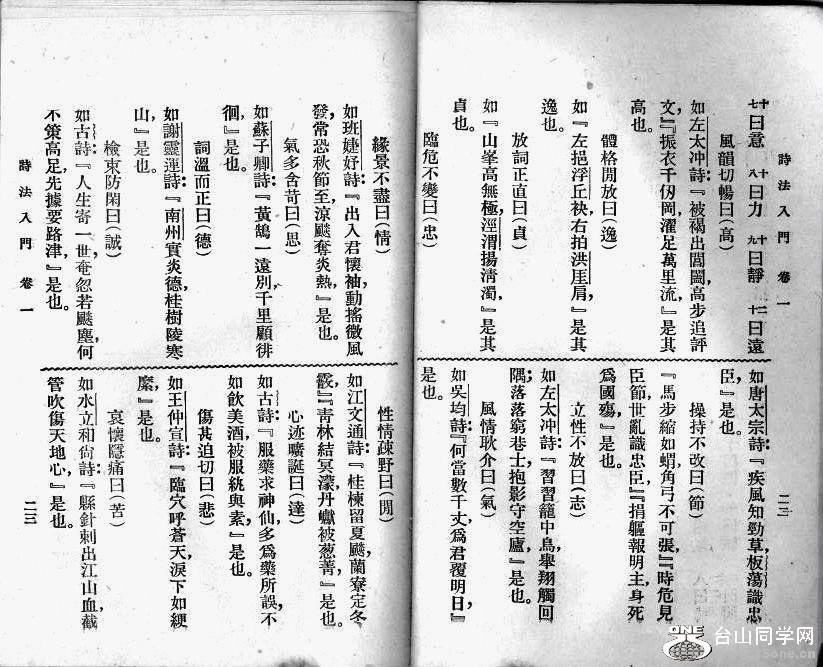 詩法入門 卷一
十七曰意 十八曰力 十九曰靜 二十曰遠
風韻切暢曰(高)
如左太冲詩『被褐出閶闔,高步追評
文』『振衣千仞岡,濯足萬里流,』是其
高也。
體格閒放曰(逸)
如『左挹浮丘袂,右拍洪厓肩,』是其
逸也。
放詞正直曰(貞)
如『山峯高無極,涇渭揚清濁,』是其
貞也。
臨危不變曰(忠)
如唐太宗詩『疾風知勁草,板蕩識忠
臣,』是也。
操持不改曰(節)
『馬步縮如蝟,角弓不可張』『時危見
臣節,世亂識忠臣,』『捐軀報明主,身死
爲國殤,』是也。
立性不放曰(志)
如左太冲詩:『習習籠中鳥,舉翔觸四
隅,落落窮巷士,抱影守空廬,』是也。
風情耿介曰(氣)
如吳均詩『何當數千丈,爲君覆明日,』
是也。
二三
緣景不盡曰(情)
如班婕妤詩『出入君懷袖,動搖微風
發,常恐秋節至,涼飈奪炎熱,』是也。
氣多含苛曰(思)
如蘇子卿詩『黃鵠一遠別,千里顧徘
徊,』是也。
詞溫而正曰(德)
如謝靈運詩『南州實炎德,桂樹陵寒
山,』是也。
檢束防閑曰(誠)
如古詩『人生寄一世,奄忽若飈塵,何
不策高足,先據要路津,』是也。
性情疎野曰(閒)
如江文通詩『桂棟留夏飈,蘭寮定冬
霰,』『青林結冥濛,丹巘被葱蒨,』是也。
心迹曠誕曰(達)
如古詩『服藥求神仙,多爲藥所誤,不
如飲美酒,被服紈與素,』是也。
傷甚迫切曰(悲)
如王仲宣詩『臨穴呼蒼天,淚下如綆
縻,』是也。
哀懷隱痛曰(苦)
如水立和尙詩『縣針刺出江山血,截
管吹傷天地心,』是也。
詩法入門 卷一
二三
ONE
台山同学网
5one.cn